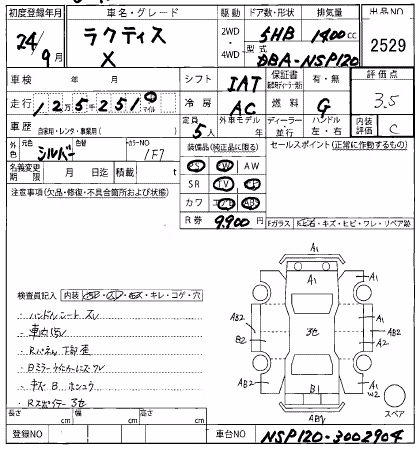 初度登録年月 車名・グレード 駆動 ドア数・形状 排気量 出品NO
24/9月 ラクティス X 2WD 4WD 5HB 1400cc 2529
型式 DBA-NSP120
車検 年 月 シフト IAT 保証書 有・無 評価点
走行 12万5千251 マイル 冷房 AC 燃料 G 3.5
車歴 自家用・レンタ・事業用( ) 定員 5人 外車モデル ディーラー 並行 ハンドル 左・右 内装評価 C
外色 元色 シルバー 色替 カラーNO 1F7 装備品(純正品に限る) セールスポイント(正常に作動するもの)
PS PW AW
名義変更期限 月 日迄 積載 t SR TV
注意事項(欠品・修復・不具合箇所および状態) カワ エアB ABS
R券 9,900円
Fガラス キズ・ヒビ・ワレ・リペア跡
A1
A1 A1
検査員記入 内装 キレ・コゲ・穴
・ハンドルシート スレ AB2 3セ A1
・車内汚レ B2 AB2
・Rパネル下部歪 A2
・キズ B ホシュウ AB2 A1
B1 W2
・Rスポイラー 3セ AB2 スペア
長さ cm 幅 cm 高さ cm
登録NO 車台NO NSP120-3002904